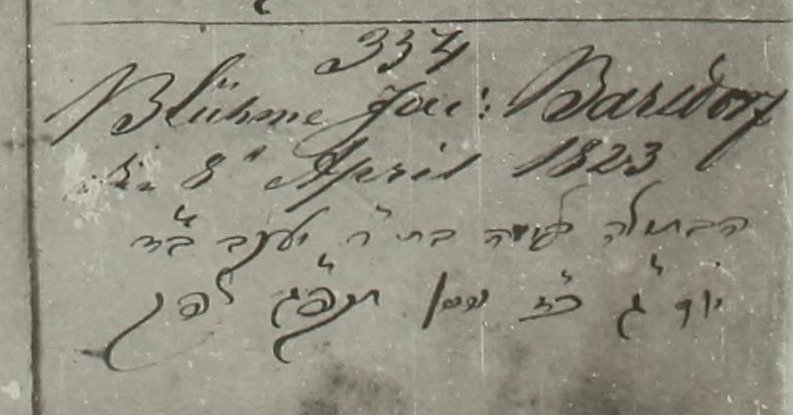 334
Blühme Jac: Barsdorf
8" April 1823
הבתולה בת ר' יעקב ב"ד
יום ג' כ"ז ניסן תקפ"ג לפק